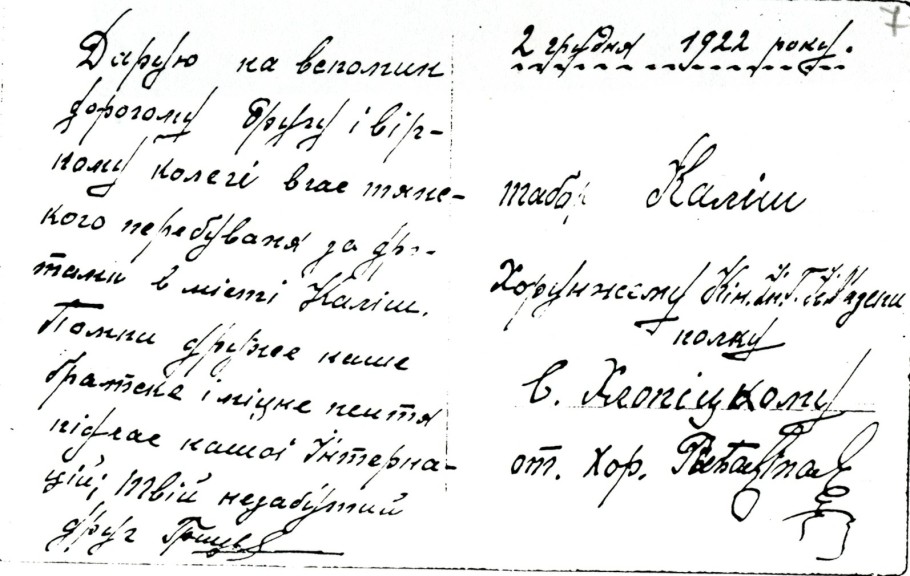 Дарую на вспомин
дорогому другу і вір-
ному колегі вчас тяже-
кого перебуваня за дро-
тами в місті Каліш.
Помни друже наше
братске і міцне життя
підчас нашої Інтерна-
цій; твій незабутий
друг
7
2 грудня 1922 року.
табор Каліш
Хорунжему Кін.
полку
В. Хлопіцкому
от. Хор.